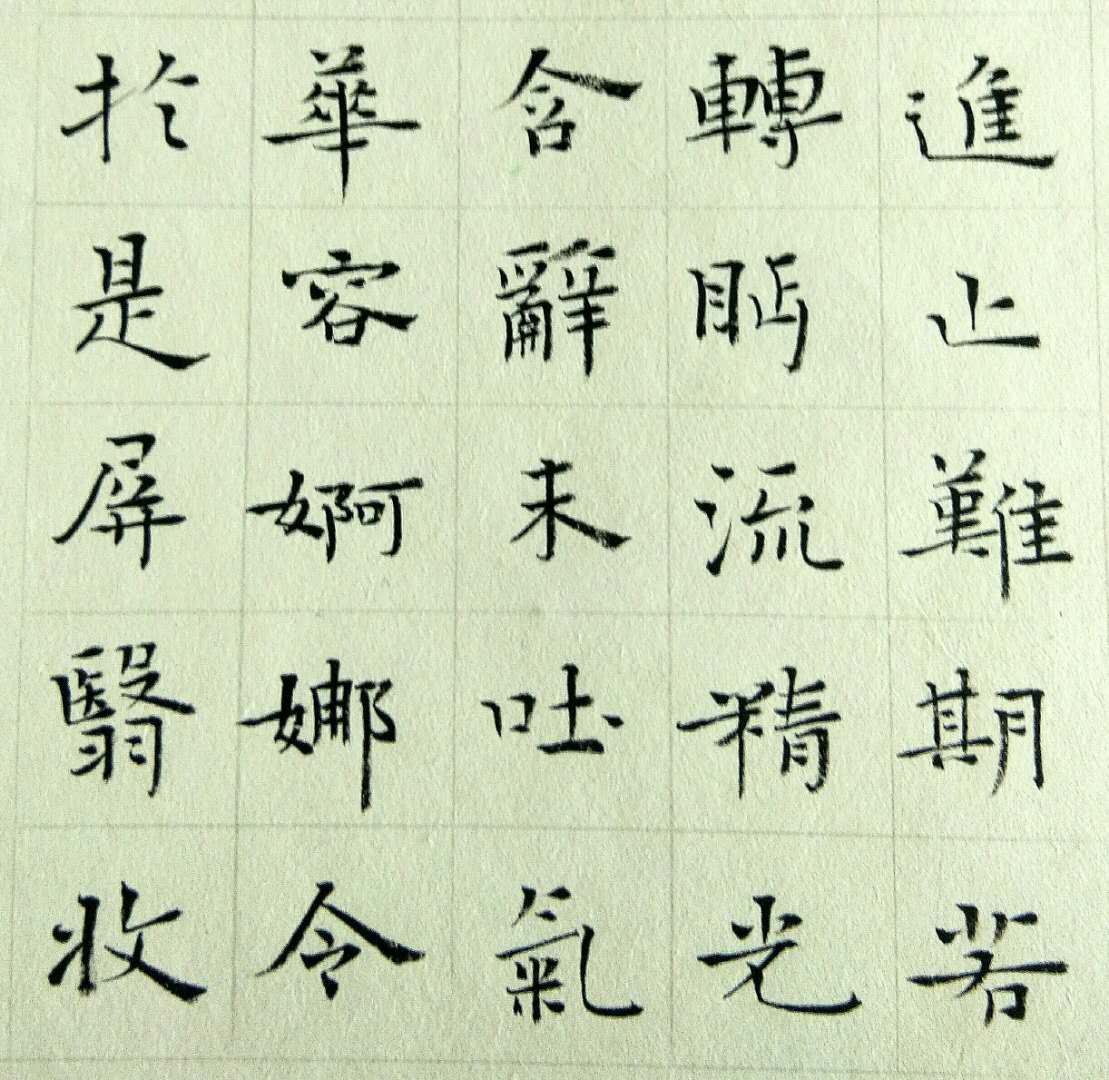 進止難期若
轉眄流精光
含辭未吐氣
華容婀娜令
於是屏翳收